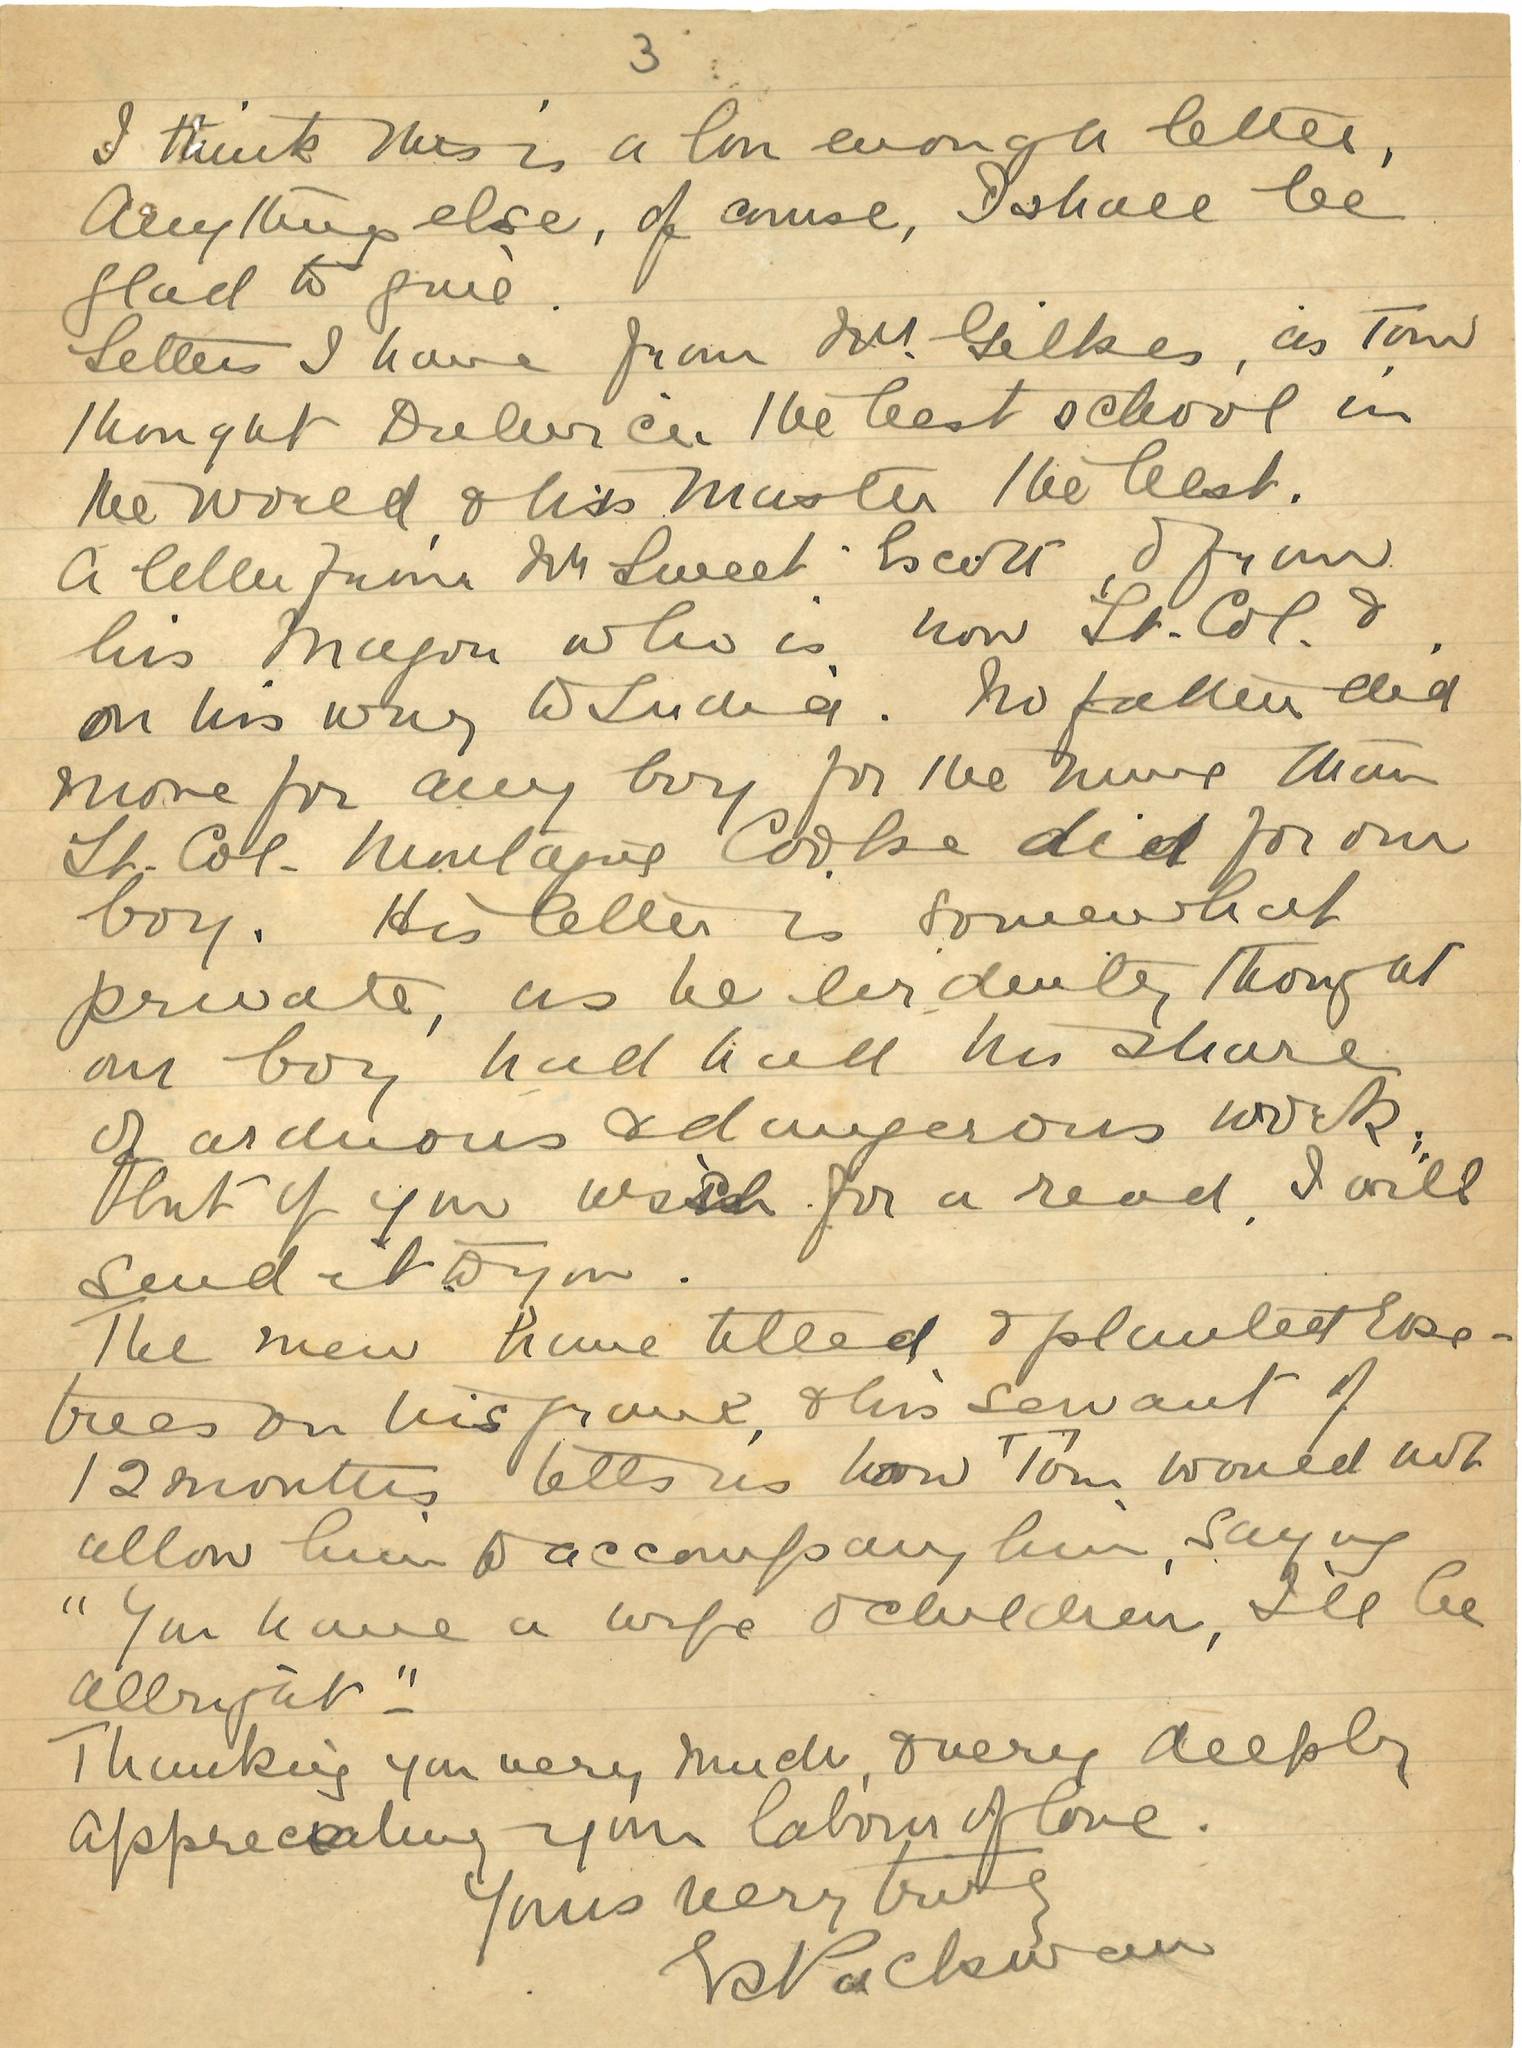 3
I think this is a lon enough letter,
Anything else, of course, I shall be
glad to give.
Letters I have from Mr. Gilkes, as Tom
thought Dulwich the best school in
the world & his Master the best.
A letter from Mr Sweet Escott, & from
his Major who is now Lt. Col. &
on his way to India. No father did
more for any boy for the time than
Lt. Col. Montague Cooke did for our
boy. His letter is somewhat
private, as he evidently thought
our boy had had his share
of arduous & dangerous work,
but if you wish for a read, I will
send it to you.
The men have tilled & planted Rose-
trees on his grave, & his servant of
12 months tells us how Tom would not
allow him to accompany him, saying
"You have a wife & children, I'll be
allright"-
Thanking you very much, & very deeply
appreciating your labour of love.
Yours very truly
Packman